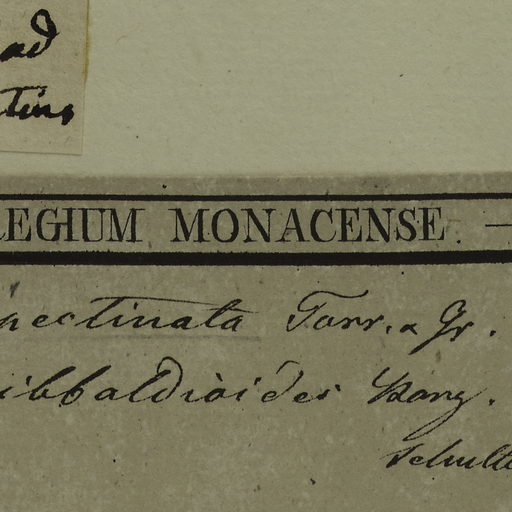 ad
tins
REGIUM MONACENSE —
pectinata Torr. & Gr.
ibbaldioides Bong.
Schultz